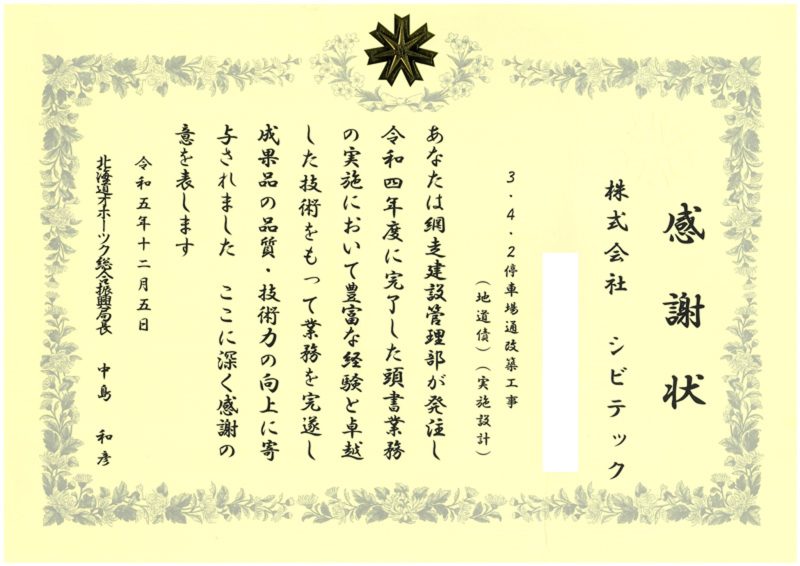 感謝状
株式会社 シビテック
3・4・2停車場通改築工事
(地道債)(実施設計)
あなたは網走建設管理部が発注し
令和四年度に完了した頭書業務
の実施において豊富な経験と卓越
した技術をもって業務を完遂し
成果品の品質・技術力の向上に寄
与されました ここに深く感謝の
意を表します
令和五年十二月五日
北海道オホーツク総合振興局長 中島 和彦